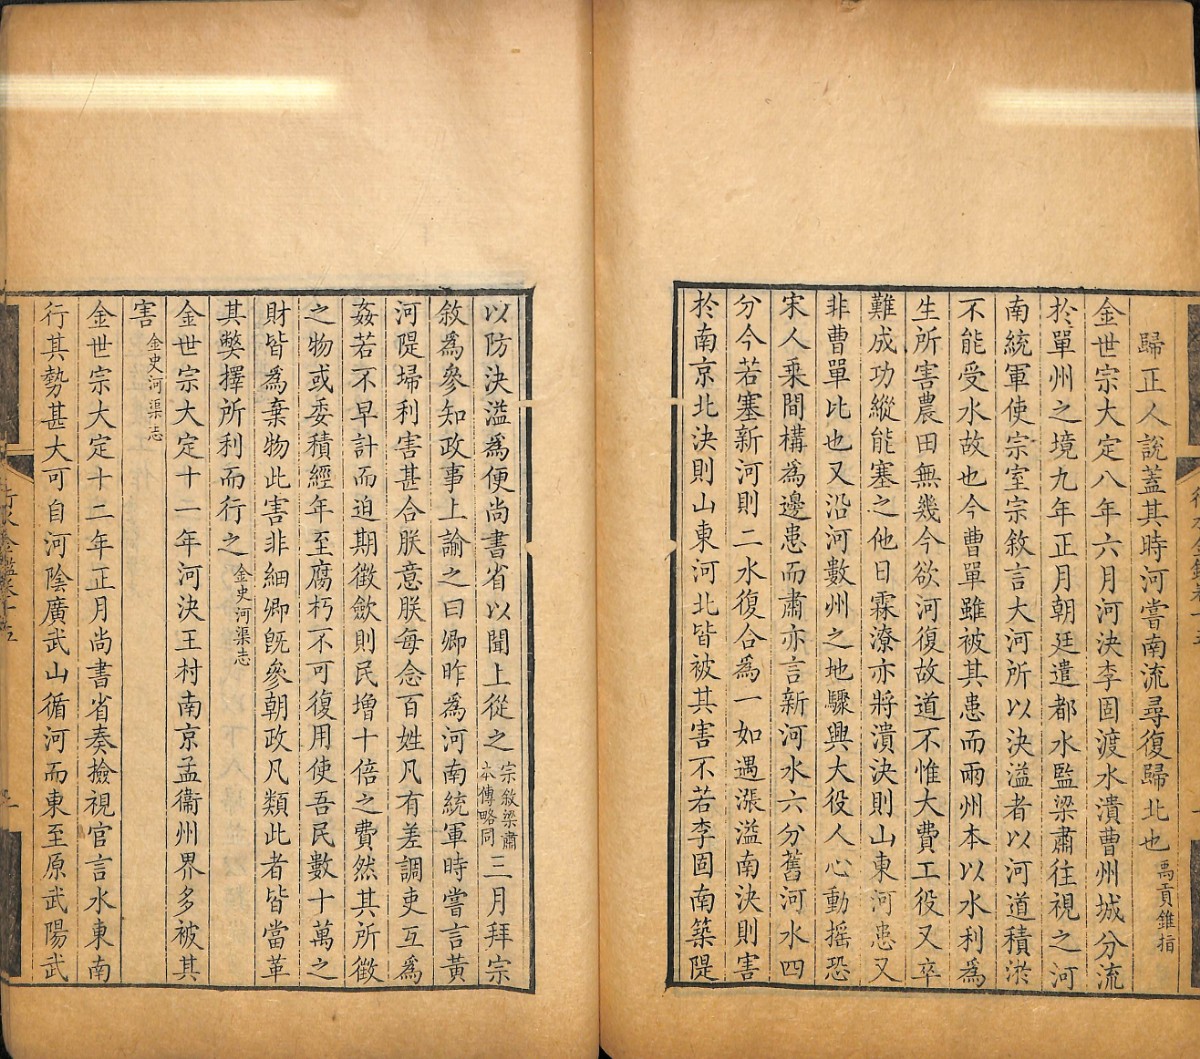 歸正人說蓋其時河嘗南流尋復歸北也禹貢錐指
金世宗大定八年六月河決李固渡水潰曹州城分流
於單州之境九年正月朝廷遣都水監梁肅往視之河
南統軍使宗室宗敘言大河所以決溢者以河道積淤
不能受水故也今曹單雖被其患而兩州本以水利為
生所害農田無幾今欲河復故道不惟大費工役又卒
難成功縱能塞之他日霖潦亦將潰決則山東河患又
非曹單比也又沿河數州之地驟興大役人心動搖恐
宋人乘間構為邊患而肅亦言新河水六分舊河水四
分今若塞新河則二水復合為一如遇漲溢南決則害
於南京北決則山東河北皆被其害不若李固南築隄
以防決溢為便尚書省以聞上從之宗敘梁肅本傳略同三月拜宗
敘為參知政事上諭之曰卿昨為河南統軍時嘗言黃
河隄埽利害甚合朕意朕每念百姓凡有差調吏互為
姦若不早計而迫期徵斂則民增十倍之費然其所徵
之物或委積經年至腐朽不可復用使吾民數十萬之
財皆為棄物此害非細卿旣參朝政凡類此者皆當革
其弊擇所利而行之金史河渠志
金世宗大定十一年河決王村南京孟衞州界多被其
害金史河渠志
金世宗大定十二年正月尚書省奏檢視官言水東南
行其勢甚大可自河陰廣武山循河而東至原武陽武